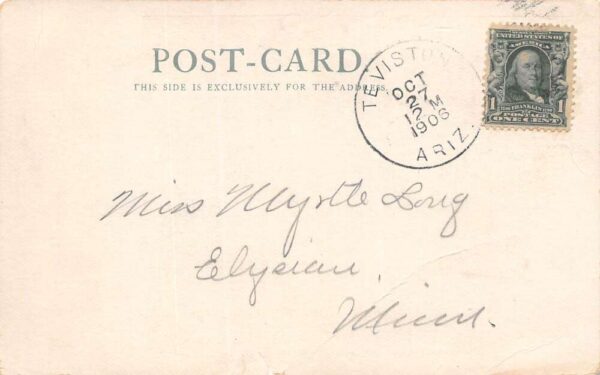 POST-CARD.
THIS SIDE IS EXCLUSIVELY FOR THE ADDRESS.
TEVISTON
OCT
27
12 M
1906
ARIZ.
UNITED STATES OF
AMERICA
1 FRANKLIN 1
POSTAGE
ONE CENT
Miss Myrtle Long
Elysian,
Minn.